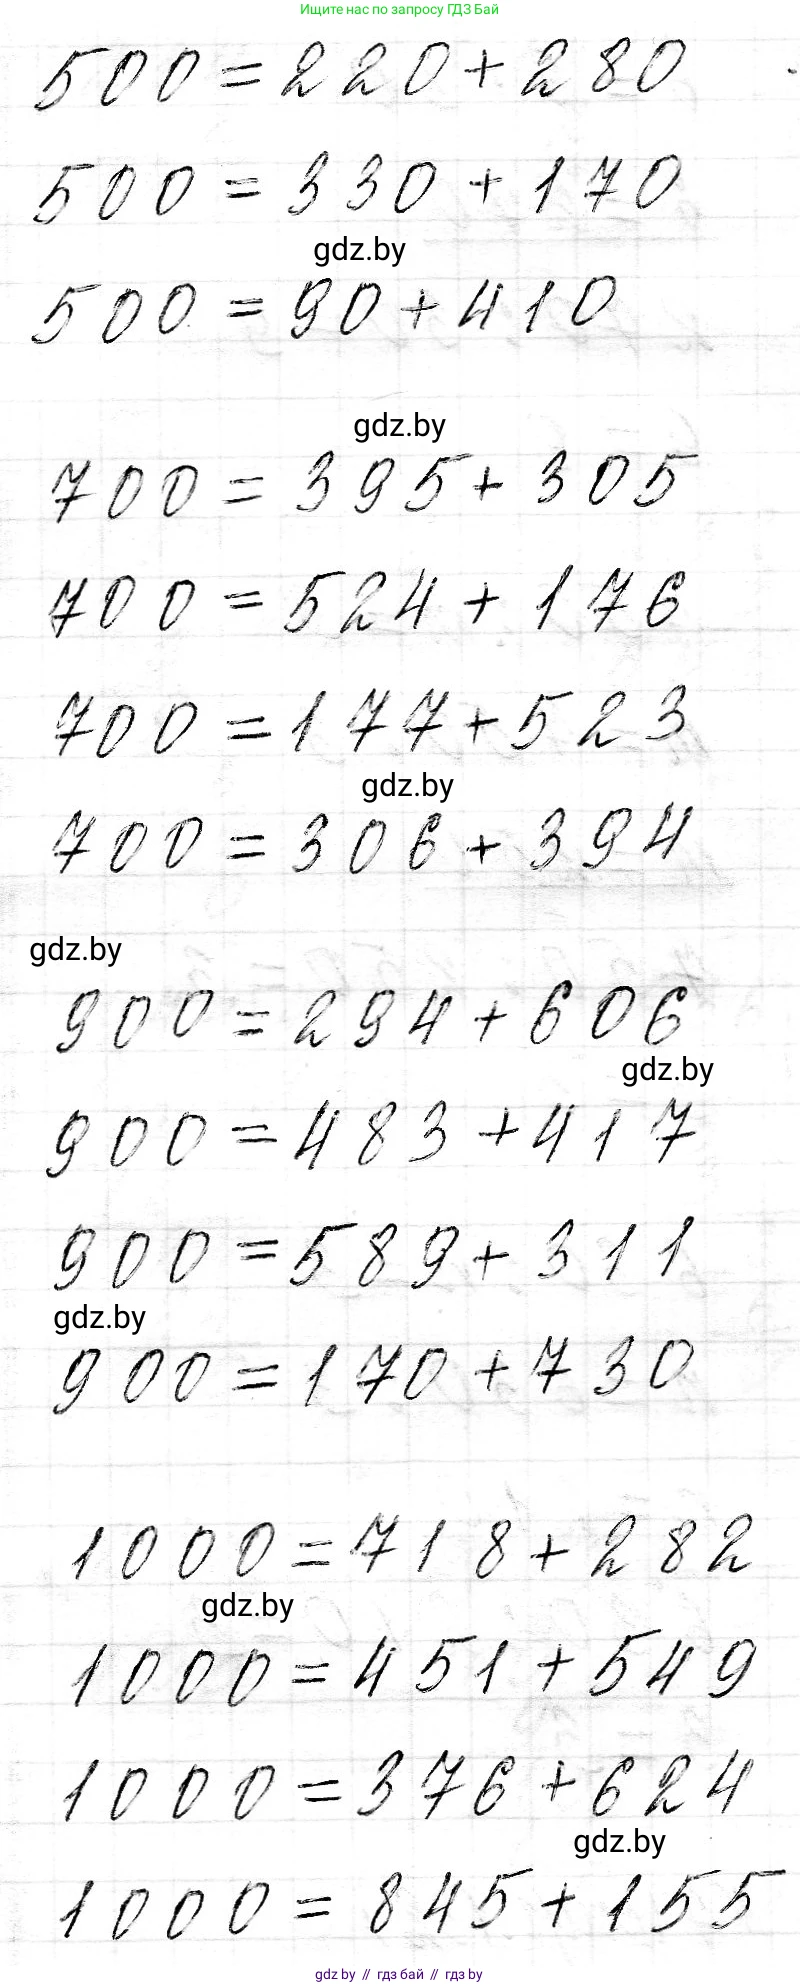 Ищите нас по запросу ГДЗ Бай
500 = 220 + 280
500 = 330 + 170
gdz.by
500 = 90 + 410
gdz.by
700 = 395 + 305
700 = 524 + 176
700 = 177 + 523
gdz.by
700 = 306 + 394
gdz.by
900 = 294 + 606
gdz.by
900 = 483 + 417
900 = 589 + 311
gdz.by
900 = 170 + 730
1000 = 718 + 282
gdz.by
1000 = 451 + 549
1000 = 376 + 624
gdz.by
1000 = 845 + 155
gdz by // гдз бай // gdz by